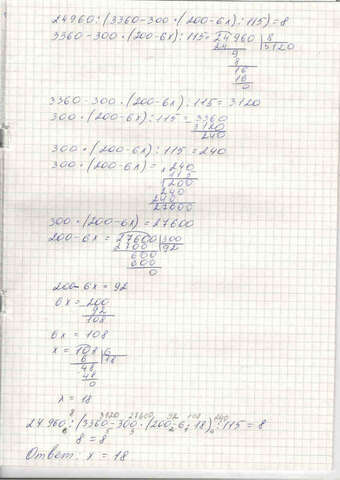 24960:(3360-300·(200-6x):115)=8
3360-300·(200-6x):115=24960 | 8
24 | 3120
9
8
16
16
0
3360-300·(200-6x):115=3120
300·(200-6x):115=3360
3120
240
300·(200-6x):115=240
300·(200-6x)=240
115
1200
240
240
27600
300·(200-6x)=27600
200-6x=27600 | 300
2700 | 92
600
600
0
200-6x=92
6x=200
92
108
6x=108
x=108 | 6
6 | 18
48
48
0
x=18
8 3120 27600 92 108 240
24960:(3360-300·(200-6·18):115=8
8=8
Ответ: x=18